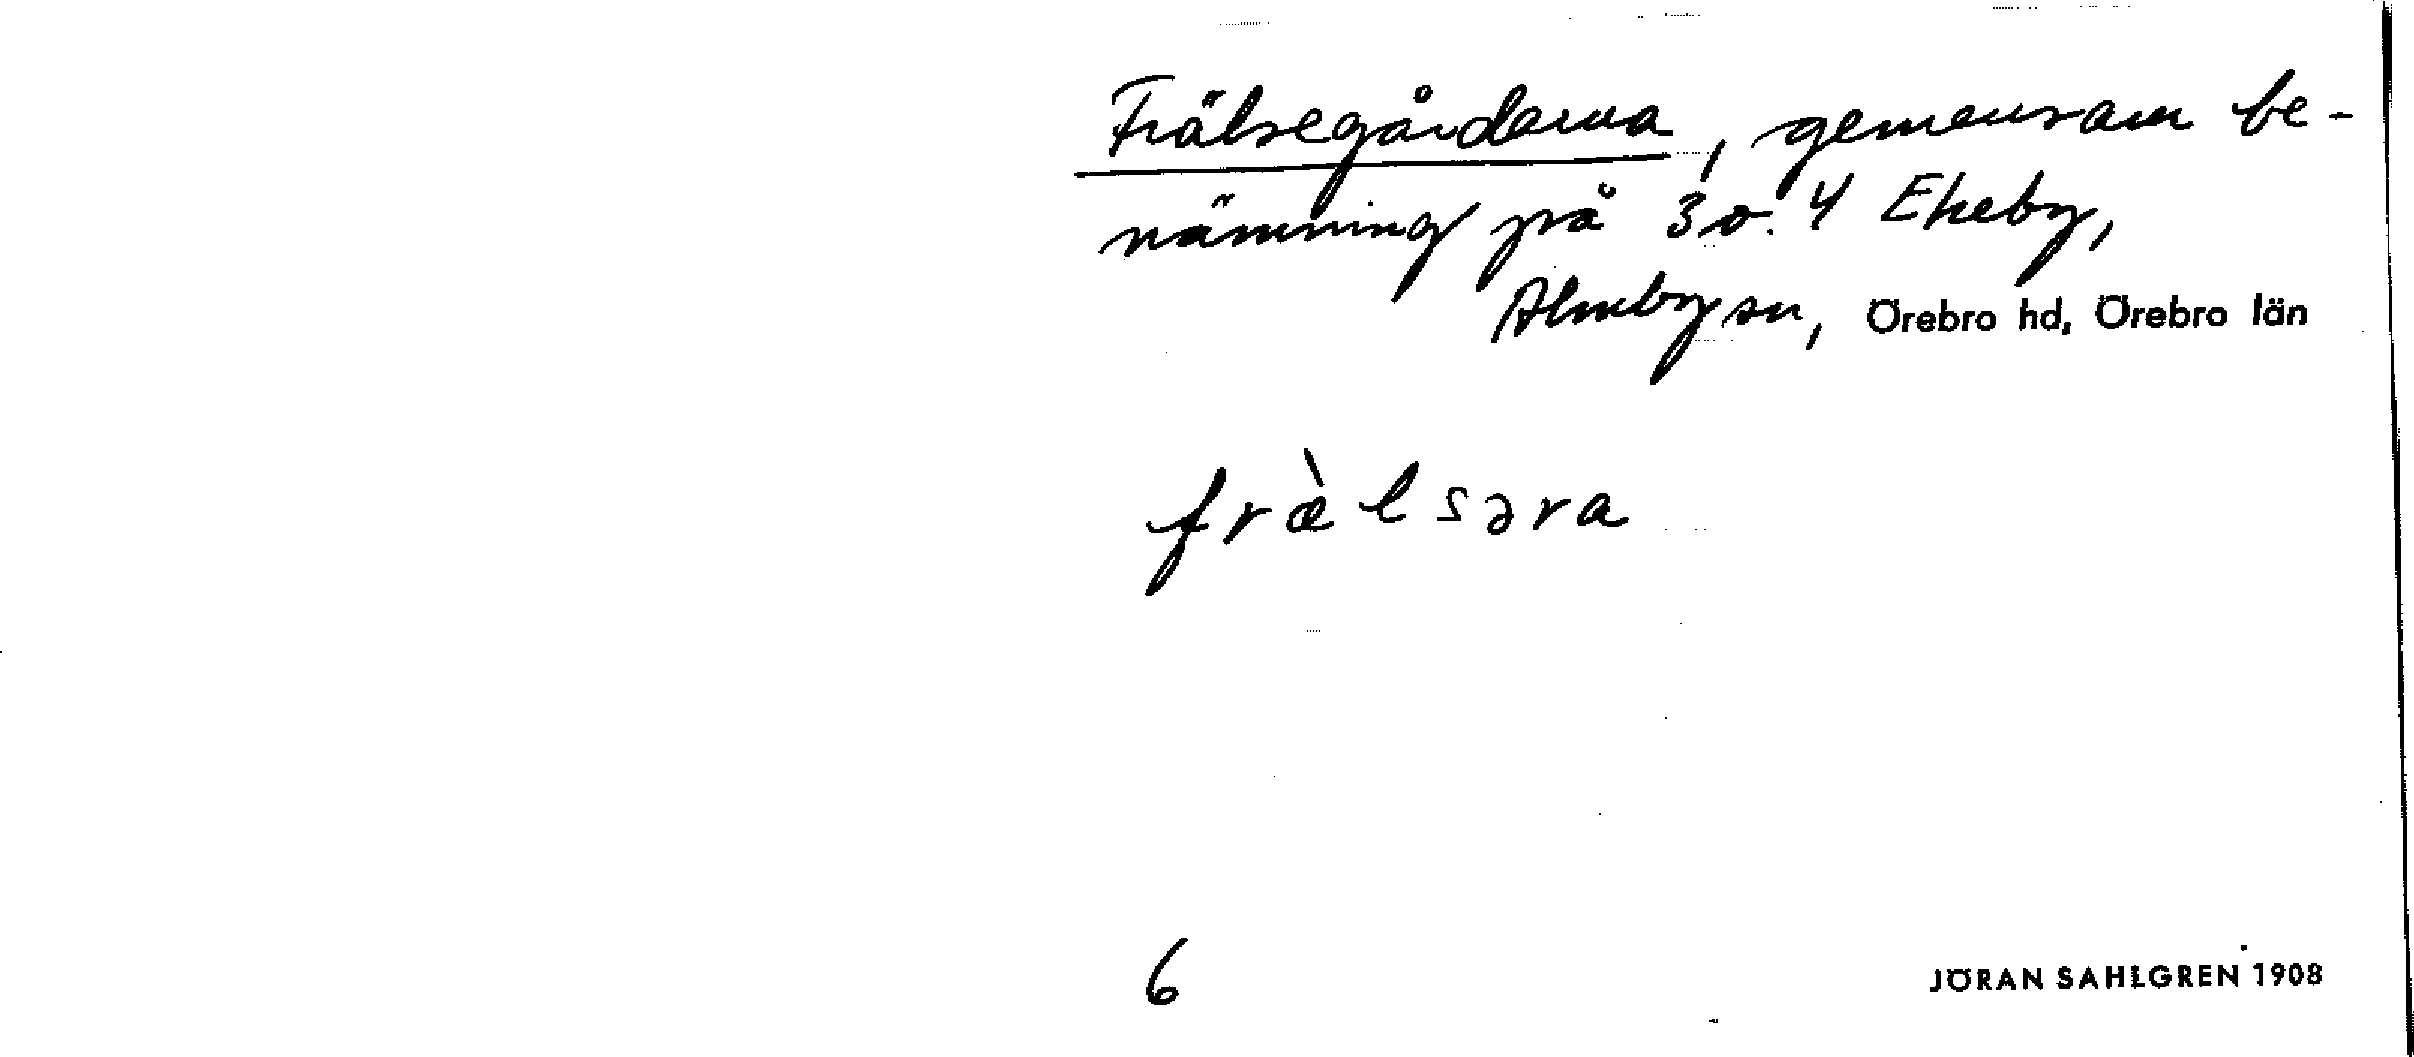 Frälsegårderna, gemensam be-
nämning på 3 o. 4 Ekeby,
Almby sn, Örebro hd, Örebro län
fræ̀lsəra
6
JÖRAN SAHLGREN 1908